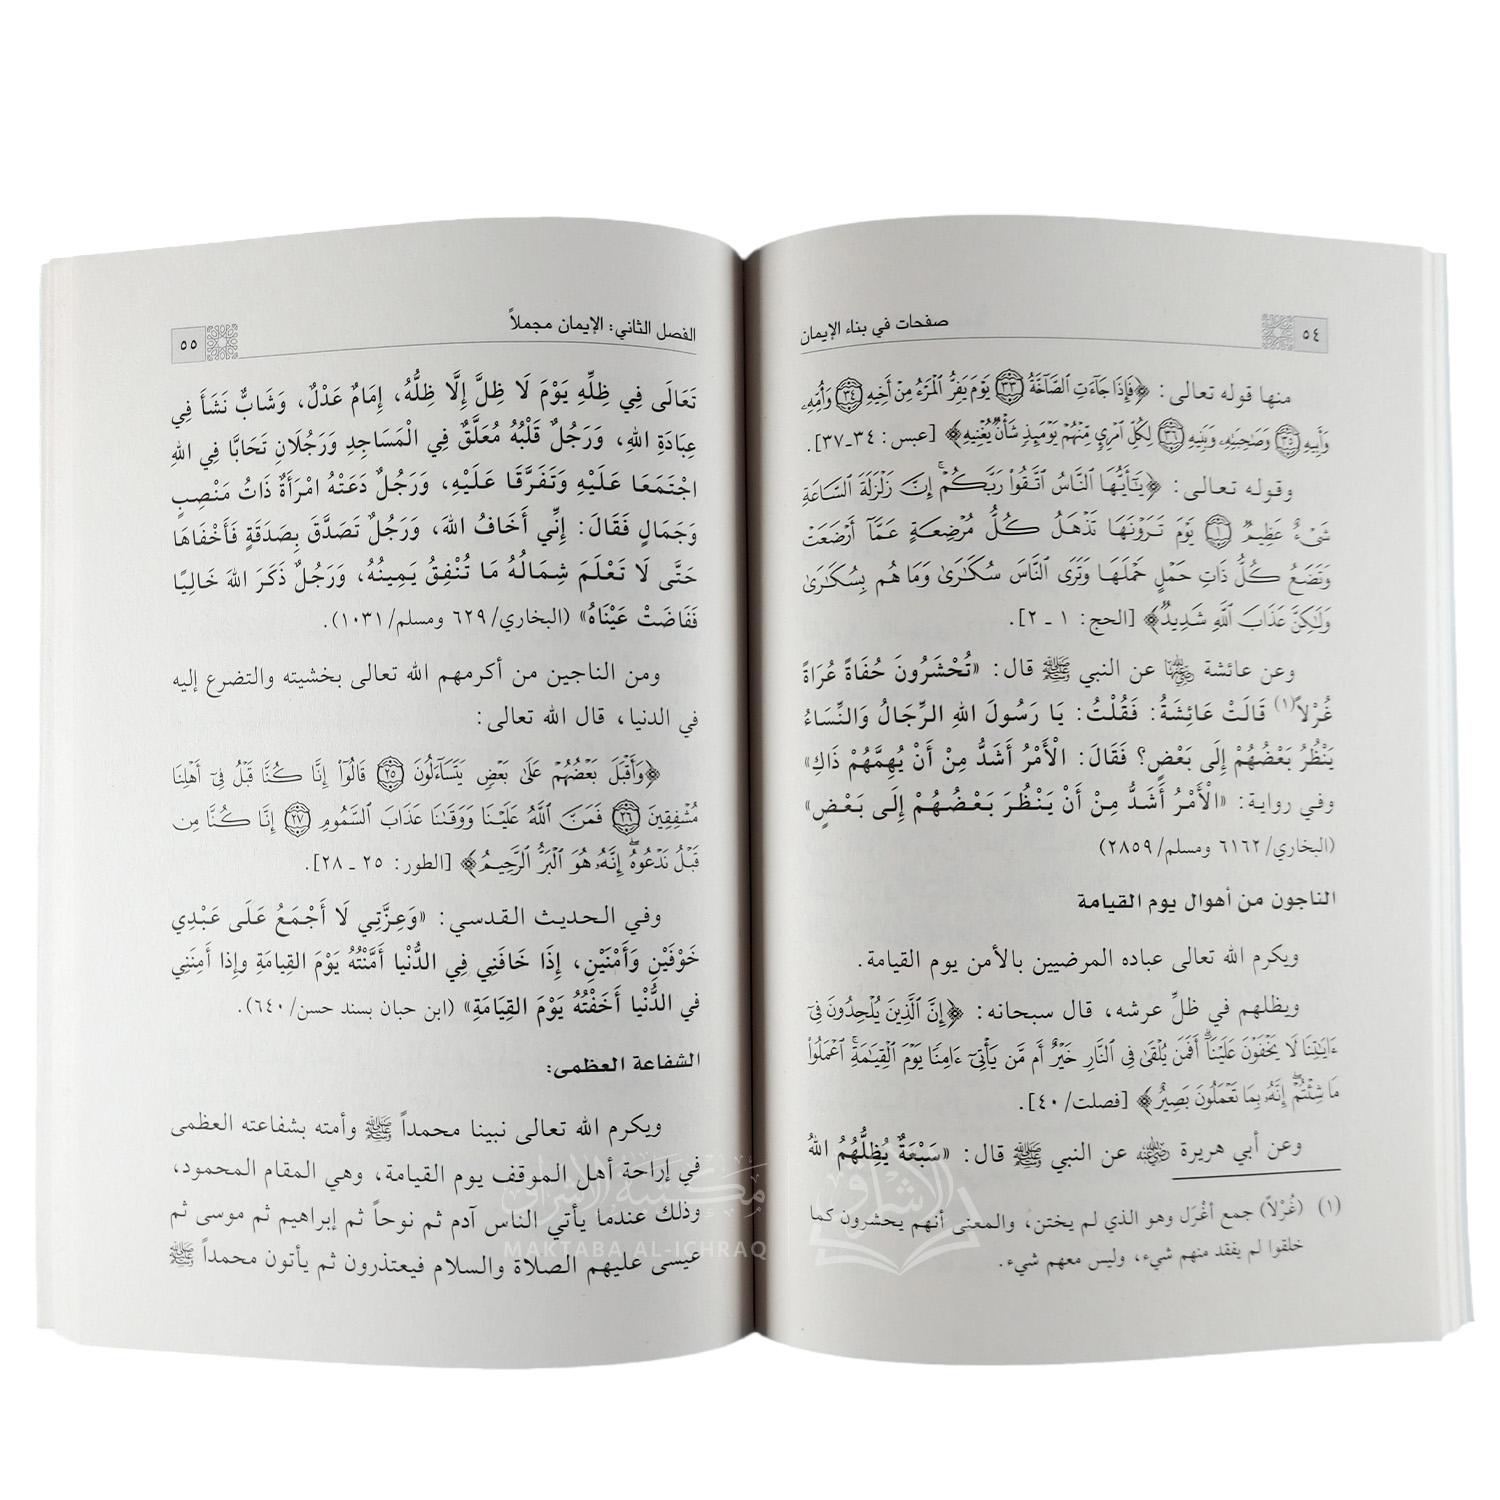 ٥٤
صفحات في بناء الإيمان
منها قوله تعالى: ﴿فَإِذَا جَآءَتِ ٱلصَّآخَّةُ ٣٣ يَوْمَ يَفِرُّ ٱلْمَرْءُ مِنْ أَخِيهِ ٣٤ وَأُمِّهِۦ
وَأَبِيهِ ٣٥ وَصَٰحِبَتِهِۦ وَبَنِيهِ ٣٦ لِكُلِّ ٱمْرِئٍ مِّنْهُمْ يَوْمَئِذٍ شَأْنٌ يُغْنِيهِ﴾ [عبس: ٣٤ـ٣٧].
وقوله تعالى: ﴿يَٰٓأَيُّهَا ٱلنَّاسُ ٱتَّقُوا۟ رَبَّكُمْ ۚ إِنَّ زَلْزَلَةَ ٱلسَّاعَةِ
شَىْءٌ عَظِيمٌ ١ يَوْمَ تَرَوْنَهَا تَذْهَلُ كُلُّ مُرْضِعَةٍ عَمَّآ أَرْضَعَتْ
وَتَضَعُ كُلُّ ذَاتِ حَمْلٍ حَمْلَهَا وَتَرَى ٱلنَّاسَ سُكَٰرَىٰ وَمَا هُم بِسُكَٰرَىٰ
وَلَٰكِنَّ عَذَابَ ٱللَّهِ شَدِيدٌ﴾ [الحج: ١ ـ ٢].
وعن عائشة رضي الله عنها عن النبي ﷺ قال: «تُحْشَرُونَ حُفَاةً عُرَاةً
غُرْلاً(١) قَالَتْ عَائِشَةُ: فَقُلْتُ: يَا رَسُولَ اللهِ الرِّجَالُ وَالنِّسَاءُ
يَنْظُرُ بَعْضُهُمْ إِلَى بَعْضٍ؟ فَقَالَ: الْأَمْرُ أَشَدُّ مِنْ أَنْ يُهِمَّهُمْ ذَاكِ»
وفي رواية: «الْأَمْرُ أَشَدُّ مِنْ أَنْ يَنْظُرَ بَعْضُهُمْ إِلَى بَعْضٍ»
(البخاري/ ٦١٦٢ ومسلم/ ٢٨٥٩)
الناجون من أهوال يوم القيامة
ويكرم الله تعالى عباده المرضيين بالأمن يوم القيامة.
ويظلهم في ظلِّ عرشه، قال سبحانه: ﴿إِنَّ ٱلَّذِينَ يُلْحِدُونَ فِىٓ
ءَايَٰتِنَا لَا يَخْفَوْنَ عَلَيْنَآ ۗ أَفَمَن يُلْقَىٰ فِى ٱلنَّارِ خَيْرٌ أَم مَّن يَأْتِىٓ ءَامِنًا يَوْمَ ٱلْقِيَٰمَةِ ۚ ٱعْمَلُوا۟
مَا شِئْتُمْ ۖ إِنَّهُۥ بِمَا تَعْمَلُونَ بَصِيرٌ﴾ [فصلت/ ٤٠].
وعن أبي هريرة رضي الله عنه عن النبي ﷺ قال: «سَبْعَةٌ يُظِلُّهُمُ اللهُ
(١) (غُرْلاً) جمع أغْرَل وهو الذي لم يختن، والمعنى أنهم يحشرون كما
خلقوا لم يفقد منهم شيء، وليس معهم شيء.
الفصل الثاني: الإيمان مجملاً
٥٥
تَعَالَى فِي ظِلِّهِ يَوْمَ لَا ظِلَّ إِلَّا ظِلُّهُ، إِمَامٌ عَدْلٌ، وَشَابٌّ نَشَأَ فِي
عِبَادَةِ اللهِ، وَرَجُلٌ قَلْبُهُ مُعَلَّقٌ فِي الْمَسَاجِدِ وَرَجُلَانِ تَحَابَّا فِي اللهِ
اجْتَمَعَا عَلَيْهِ وَتَفَرَّقَا عَلَيْهِ، وَرَجُلٌ دَعَتْهُ امْرَأَةٌ ذَاتُ مَنْصِبٍ
وَجَمَالٍ فَقَالَ: إِنِّي أَخَافُ اللهَ، وَرَجُلٌ تَصَدَّقَ بِصَدَقَةٍ فَأَخْفَاهَا
حَتَّى لَا تَعْلَمَ شِمَالُهُ مَا تُنْفِقُ يَمِينُهُ، وَرَجُلٌ ذَكَرَ اللهَ خَالِيًا
فَفَاضَتْ عَيْنَاهُ» (البخاري/ ٦٢٩ ومسلم/ ١٠٣١).
ومن الناجين من أكرمهم الله تعالى بخشيته والتضرع إليه
في الدنيا، قال الله تعالى:
﴿وَأَقْبَلَ بَعْضُهُمْ عَلَىٰ بَعْضٍ يَتَسَآءَلُونَ ٢٥ قَالُوٓا۟ إِنَّا كُنَّا قَبْلُ فِىٓ أَهْلِنَا
مُشْفِقِينَ ٢٦ فَمَنَّ ٱللَّهُ عَلَيْنَا وَوَقَىٰنَا عَذَابَ ٱلسَّمُومِ ٢٧ إِنَّا كُنَّا مِن
قَبْلُ نَدْعُوهُ ۖ إِنَّهُۥ هُوَ ٱلْبَرُّ ٱلرَّحِيمُ﴾ [الطور: ٢٥ ـ ٢٨].
وفي الحديث القدسي: «وَعِزَّتِي لَا أَجْمَعُ عَلَى عَبْدِي
خَوْفَيْنِ وَأَمْنَيْنِ، إِذَا خَافَنِي فِي الدُّنْيا أَمَّنْتُهُ يَوْمَ القِيَامَةِ وإِذا أَمِنَنِي
في الدُّنْيا أَخَفْتُهُ يَوْمَ القِيَامَةِ» (ابن حبان بسند حسن/ ٦٤٠).
الشفاعة العظمى:
ويكرم الله تعالى نبينا محمداً ﷺ وأمته بشفاعته العظمى
في إراحة أهل الموقف يوم القيامة، وهي المقام المحمود،
وذلك عندما يأتي الناس آدم ثم نوحاً ثم إبراهيم ثم موسى ثم
عيسى عليهم الصلاة والسلام فيعتذرون ثم يأتون محمداً ﷺ
مكتبة الإشراق
MAKTABA AL-ICHRAQ
الإشراق